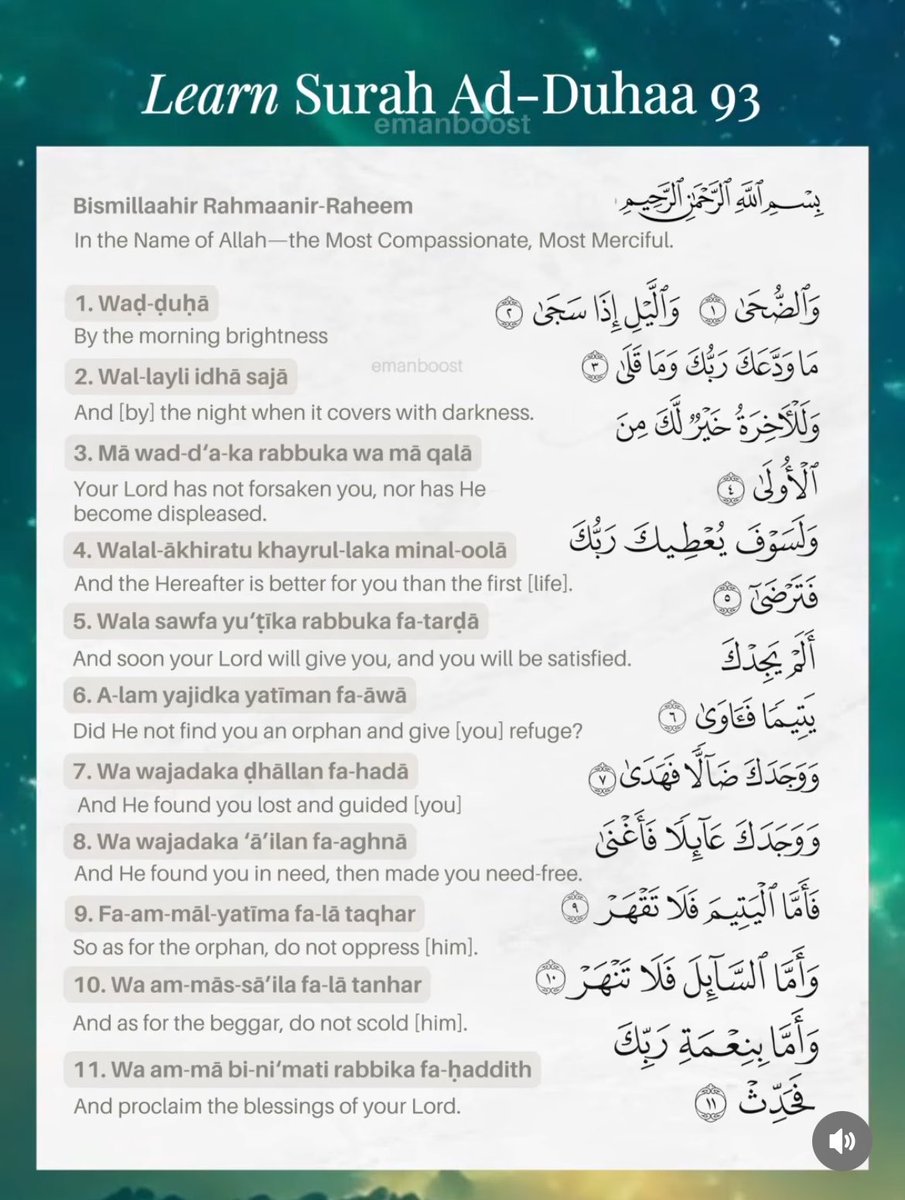 Learn Surah Ad-Duhaa 93
emanboost
Bismillaahir Rahmaanir-Raheem
بِسۡمِ ٱللَّهِ ٱلرَّحۡمَٰنِ ٱلرَّحِيمِ
In the Name of Allah—the Most Compassionate, Most Merciful.
1. Waḍ-ḍuḥā
وَٱلضُّحَىٰ ١ وَٱلَّيۡلِ إِذَا سَجَىٰ ٢
By the morning brightness
emanboost
مَا وَدَّعَكَ رَبُّكَ وَمَا قَلَىٰ ٣
2. Wal-layli idhā sajā
And [by] the night when it covers with darkness.
وَلَلۡأٓخِرَةُ خَيۡرٞ لَّكَ مِنَ
3. Mā wad-d‘a-ka rabbuka wa mā qalā
Your Lord has not forsaken you, nor has He
ٱلۡأُولَىٰ ٤
become displeased.
4. Walal-ākhiratu khayrul-laka minal-oolā
وَلَسَوۡفَ يُعۡطِيكَ رَبُّكَ
And the Hereafter is better for you than the first [life].
فَتَرۡضَىٰٓ ٥
5. Wala sawfa yu‘ṭīka rabbuka fa-tarḍā
And soon your Lord will give you, and you will be satisfied.
أَلَمۡ يَجِدۡكَ
6. A-lam yajidka yatīman fa-āwā
يَتِيمٗا فَـَٔاوَىٰ ٦
Did He not find you an orphan and give [you] refuge?
7. Wa wajadaka ḍhāllan fa-hadā
وَوَجَدَكَ ضَآلّٗا فَهَدَىٰ ٧
And He found you lost and guided [you]
8. Wa wajadaka ‘ā’ilan fa-aghnā
وَوَجَدَكَ عَآئِلٗا فَأَغۡنَىٰ
And He found you in need, then made you need-free.
9. Fa-am-māl-yatīma fa-lā taqhar
فَأَمَّا ٱلۡيَتِيمَ فَلَا تَقۡهَرۡ ٩
So as for the orphan, do not oppress [him].
10. Wa am-mās-sā’ila fa-lā tanhar
وَأَمَّا ٱلسَّآئِلَ فَلَا تَنۡهَرۡ ١٠
And as for the beggar, do not scold [him].
وَأَمَّا بِنِعۡمَةِ رَبِّكَ
11. Wa am-mā bi-ni‘mati rabbika fa-ḥaddith
And proclaim the blessings of your Lord.
فَحَدِّثۡ ١١